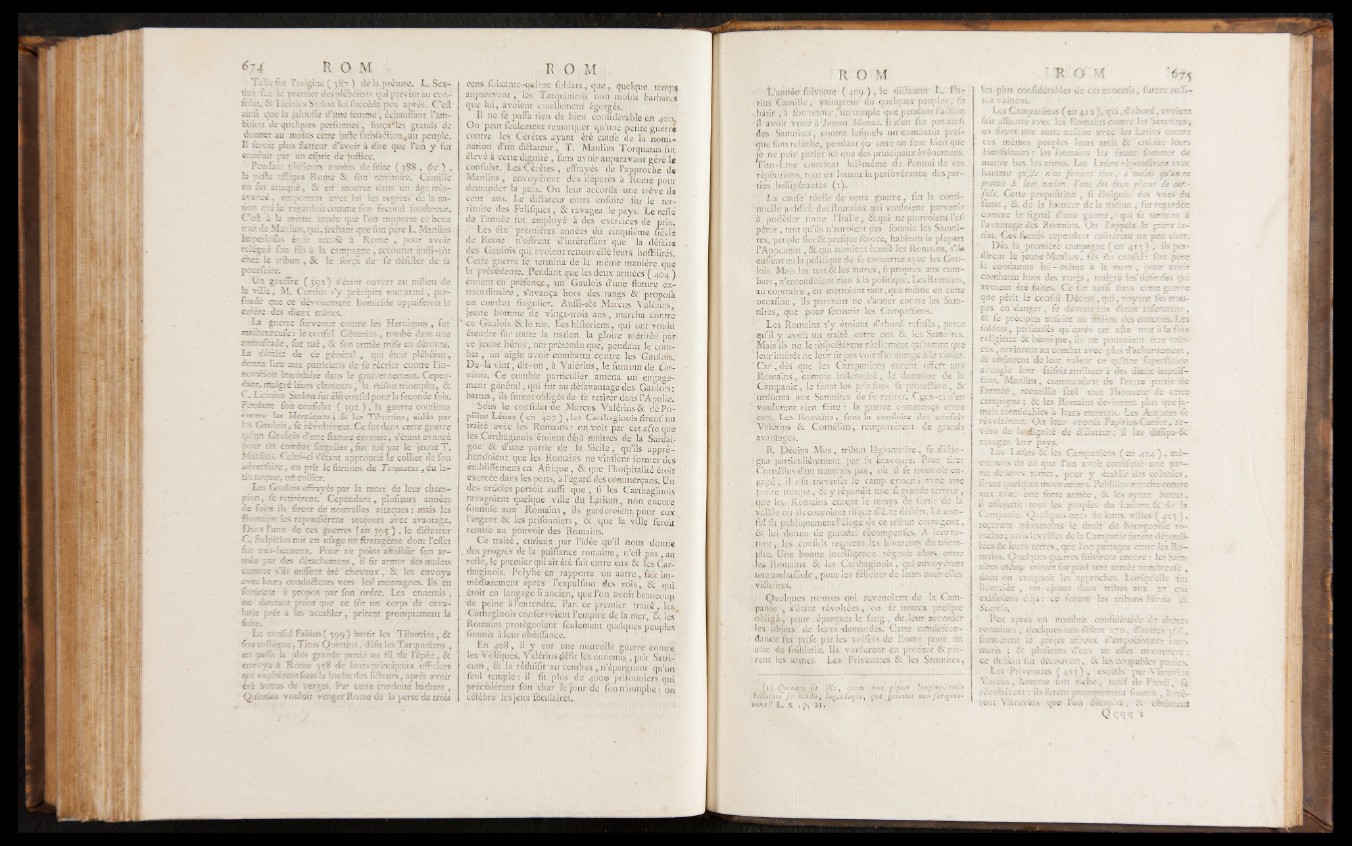 674 R O M
R O M
Telle fut l'origine ( 387 ) de la préture. L. Sex-
tius fut le premier des plébéiens qui parvint au con-
sulat, & Licinius Stolon lui succéda peu après. C'est
ainsi que la jalousie d'une femme, échauffant l'am-
bition de quelques personnes, força les grands de
donner au moins cette juste satisfaction au peuple.
Il seroit plus flatteur d'avoir à dire que l'on y fut
conduit par un esprit de justice.
Pendant plusieurs années de suite ( 388, &c ) ,
la peste affligea Rome & son territoire. Camille
en fut attaqué, & en mourut dans un âge très-
avancé, emportant avec lui les regrets de la na-
tion qui le regardoit comme son second fondateur.
C'est à la même année que l'on rapporte ce beau
trait de Manlius, qui, sachant que son père L. Manlius
Imperiosus étoit accusé à Rome, pour avoir
relégué son fils à la campagne, accourut aussi-tôt
chez le tribun, & le força de se désister de sa
poursuite.
Un gouffre ( 392 ) s'étant ouvert au milieu de
la ville, M. Curtius s'y précipita tout armé, per-
suadé que ce dévouement homicide appaiseroit la
colère des dieux mânes.
La guerre survenue contre les Herniques, fut
malheureuse: le consul Génutius, tombé dans une
ambuscade, fut tué, & son armée mise en déroute.
La défaite de ce général, qui étoit plébéien,
donna lieu aux patriciens de se récrier contre l'in-
novation introduite dans le gouvernement. Cepen-
dant, malgré leurs clameurs, la raison triompha, &
C. Licinius Stolon fut élu consul pour la seconde fois.
Pendant son consulat ( 392 ), la guerre continua
contre les Herniques; & les Tiburtins, aidés par
les Gaulois, se révoltèrent. Ce fut dans cette guerre
qu'un Gaulois d'une stature énorme, s'étant avancé
pour un combat singulier, fut tué par le jeune T.
Manlius. Celui-ci s'étant approprié le collier de son
adversaire, en prit le surnom de Torquatus, du la-
tin torques, un collier.
Les Gaulois effrayés par la mort de leur cham-
pion, se retirèrent. Cependant, plusieurs années
de suite ils firent de nouvelles attaques: mais les
Romains les repoussèrent toujours avec avantage.
Dans l'une de ces guerres ( en 395 ), le dictateur
C. Sulpicius mit en usage un stratagème dont l'effet
fut très-heureux. Pour ne point affoiblir son ar-
mée par des détachemens, il fit armer des mulets
comme s'ils eussent été chevaux, & les envoya
avec leurs conducteurs vers les montagnes. Ils en
sortirent à propos par son ordre. Les ennemis,
ne doutant point que ce fût un corps de cava-
lerie prêt à les accabler, prirent promptement la
fuite.
Le consul Fabius ( 399 ) battit les Tiburtins, &
son collègue, Titus Quintius, défit les Tarquiniens,
en passa la plus grande partie au fil de l'épée, &
envoya à Rome 358 de leurs principaux officiers
qui expirèrent sous la hache des licteurs, après avoir
été battus de verges. Par cette conduite barbare,
Quintius vouloit venger Rome de la perte de trois
cens soixante-quinze soldats, que, quelque temps
auparavant, les Tarquiniens non moins barbares
que lui, avoient cruellement égorgés.
Il ne se passa rien de bien considérable en 400.
On peut seulement remarquer qu'une petite guerre
contre les Cérètes ayant été cause de la nomi-
nation d'un dictateur, T. Manlius Torquatus fut
élevé à cette dignité, sans avoir auparavant géré le
consulat. Les Cérètes, effrayés de l'approche de
Manlius, envoyèrent des députés à Rome pour
demander la paix. On leur accorda une trêve de
cent ans. Le dictateur entra ensuite sur le ter-
ritoire des Falisques, & ravagea le pays. Le reste
de l'année fut employé à des exercices de paix.
Les dix premières années du cinquième siècle
de Rome n'offrent d'intéressant que la défaite
des Gaulois qui avoient renouvellé leurs hostilités.
Cette guerre se termina de la même manière que
la précédente. Pendant que les deux armées ( 404 )
étoient en présence, un Gaulois d'une stature ex-
traordinaire, s'avança hors des rangs & proposa
un combat singulier. Aussi-tôt Marcus Valérius,
jeune homme de vingt-trois ans, marcha contre
ce Gaulois & le tua. Les historiens, qui ont voulu
étendre sur toute la nation la gloire méritée par
ce jeune héros, ont prétendu que, pendant le com-
bat, un aigle avoit combattu contre les Gaulois.
De-là vint, dit-on, à Valérius, le surnom de Cor-
vinus. Ce combat particulier amena un engage-
ment général, qui fut au désavantage des Gaulois:
battus, ils furent obligés de se retirer dans l'Apulie.
Sous le consulat de Marcus Valérius & de Po-
pilius Lénas ( en 407 ), les Carthaginois firent un
traité avec les Romains: on voit par cet acte que
les Carthaginois étoient déjà maîtres de la Sardai-
gne & d'une partie de la Sicile, qu'ils appré-
hendoient que les Romains ne vinssent former des
établissemens en Afrique, & que l'hospitalité étoit
exercée dans les ports, à l'égard des commerçans. Un
des articles portoit aussi que, si les Carthaginois
ravageoient quelque ville du Latium, non encore
soumise aux Romains, ils garderoient pour eux
l'argent & les prisonniers, & que la ville seroit
remise au pouvoir des Romains.
Ce traité, curieux par l'idée qu'il nous donne
des progrès de la puissance romaine, n'est pas, au
reste, le premier qui ait été fait entre eux & les Car-
thaginois. Polybe en rapporte un autre, fait im-
médiatement après l'expulsion des rois, & qui
étoit en langage si ancien, que l'on avoit beaucoup
de peine à l'entendre. Par ce premier traité, les
Carthaginois conservoient l'empire de la mer, & les
Romains protégeoient seulement quelques peuples
soumis à leur obéissance.
En 408, il y eut une nouvelle guerre contre
les Volsques. Valérius défit les ennemis, prit Satri-
cum, & la réduisit au cendres, n'épargnant qu'un
seul temple: il fit plus de 4000 prisonniers qui
précédèrent son char le jour de son triomphe: on
célébra les jeux séculaires.
R O M
R O M 675
L'année suivante ( 409 ), le dictateur L. Fu-
rius Camille, vainqueur de quelques peuples, fit
bâtir, à son retour, un temple que pendant l'action
il avoit voué à Junon Moneta. Il n'en fut pas ainsi
des Samnites, contre lesquels on combattit pres-
que sans relâche, pendant 50 ans: on sent bien que
je ne puis parler ici que des principaux événemens.
Tite-Live convient lui-même de l'ennui de ces
répétitions, tout en louant la persévérance des par-
ties belligérantes (1).
La cause réelle de cette guerre, fut la conti-
nuelle avidité des Romains qui vouloient parvenir
à posséder toute l'Italie, & qui ne pouvoient l'es-
pérer, tant qu'ils n'auroient pas soumis les Samni-
tes, peuple fier & presque féroce, habitant la plupart
l'Appennin, & qui auroient écrasé les Romains, s'ils
eussent eu la politique de se concerter avec les Gau-
lois. Mais les uns & les autres, si propres aux com-
bats, n'entendoient rien à la politique. Les Romains,
au contraire, en mettoient tant, que même en cette
occasion, ils parurent ne s'armer contre les Sam-
nites, que pour secourir les Campaniens.
Les Romains s'y étoient d'abord refusés, parce
qu'il y avoit un traité entre eux & les Samnites.
Mais ils ne le respectèrent réellement qu'autant que
leur intérêt ne leur fit pas voir d'avantage à le violer.
Car, dès que les Campaniens eurent offert aux
Romains, comme indemnité, le domaine de la
Campanie, le sénat les prit sous sa protection, &
ordonna aux Samnites de se retirer. Ceux-ci n'en
voulurent rien faire: la guerre commença entre
eux. Les Romains, sous la conduite des consuls
Valérius & Cornélius, remportèrent de grands
avantages.
P. Décius Mus, tribun légionnaire, se distin-
gua particulièrement par sa bravoure. Pour tirer
Cornélius d'un mauvais pas, où il se trouvoit en-
gagé, il osa traverser le camp ennemi avec une
petite troupe, & y répandit une si grande terreur,
que les Romains eurent le temps de sortir de la
vallée où ils couroient risque d'être défaits. Le con-
sul fit publiquement l'éloge de ce tribun courageux,
& lui donna de grandes récompenses. A leur re-
tour, les consuls reçurent les honneurs du triom-
phe. Une bonne intelligence régnoit alors entre
les Romains & les Carthaginois, qui envoyèrent
une ambassade, pour les féliciter de leurs nouvelles
victoires.
Quelques troupes qui revenoient de la Cam-
panie, s'étant révoltées, on se trouva presque
obligé, pour épargner le sang, de leur accorder
les objets de leurs demandes. Cette condescen-
dance fut prise par les voisins de Rome pour un
acte de foiblesse. Ils voulurent en profiter & pri-
rent les armes. Les Privernates & les Samnites,
(1) Quinam sit ille, quem non pigeat longinquitatis
bellorum scribendo, legendoque, quæ gerentes non fatigave-
runt? L. X, §. 31.
les plus considérables de ces ennemis, furent aussi-
tôt vaincus.
Les Campaniens ( en 412 ), qui, d'abord, avoient
fait alliance avec les Romains contre les Samnites,
en firent une autre ensuite avec les Latins contre
ces mêmes peuples leurs amis & ensuite leurs
bienfaiteurs: les Romains les firent sommer de
mettre bas les armes. Les Latins répondirent avec
hauteur qu'ils n'en feroient rien, à moins qu'on ne
promît à leur nation l'une des deux places de con-
suls. Cette proposition, si éloignée des vues du
sénat, & de la hauteur de la nation, fut regardée
comme le signal d'une guerre, qui se termina à
l'avantage des Romains. On l'appela la guerre la-
tine. Ces succès cependant coûtèrent un peu cher.
Dès la première campagne ( en 413 ), ils per-
dirent le jeune Manlius, fils du consul: son père
le condamna lui-même à la mort, pour avoir
combattu hors des rangs, malgré les défenses qui
avoient été faites. Ce fut aussi dans cette guerre
que périt le consul Décius, qui, voyant ses trou-
pes en danger, se dévoua aux dieux infernaux,
& se précipita ensuite au milieu des ennemis. Les
soldats, persuadés qu'après cet acte tout à la fois
religieux & héroïque, ils ne pouvoient être vain-
cus, revinrent au combat avec plus d'acharnement,
& obtinrent de leur valeur ce qu'une superstition
aveugle leur faisoit attribuer à des dieux impuis-
sans. Manlius, commandant de l'autre partie de
l'armée, recueillit seul tout l'honneur de cette
campagne; & les Romains devinrent plus que ja-
mais formidables à leurs ennemis. Les Antiates se
révoltèrent. On leur opposa Papirius-Cursor, re-
vêtu de la dignité de dictateur: il les dissipa &
ravagea leur pays.
Les Latins & les Campaniens ( en 414 ), mé-
contens de ce que l'on avoit confisqué une par-
tie de leurs terres, pour y établir des colonies,
firent quelques mouvemens. Publilius marcha contre
eux avec une forte armée, & les ayant battus,
il assujettit tous les peuples du Latium & de la
Campanie. Quelques-unes de leurs villes ( 415 ),
reçurent néanmoins le droit de bourgeoisie ro-
maine; mais les villes de la Campanie furent dépouil-
lées de leurs terres, que l'on partagea entre les Ro-
mains. Quelques guerres suivirent encore: les Sam-
nites même mirent sur pied une armée nombreuse,
dont on craignoit les approches. Lorsqu'elle fut
licenciée, on ajouta deux tribus aux 27 qui
existoient déjà: ce furent les tribus Mœcia &
Scaptia.
Peu après un nombre considérable de dames
romaines, quelques-uns disent 170, d'autres 368,
formèrent le projet affreux d'empoisonner leurs
maris; & plusieurs d'eux en effet moururent:
ce dessein fut découvert, & les coupables punies.
Les Privernates ( 423 ), excités par Vitruvius
Vaccus, homme fort riche, natif de Fundi, se
révoltèrent: ils furent promptement soumis, livrè-
rent Vitruvius que l'on décapita, & obtinrent
Qqqq 2